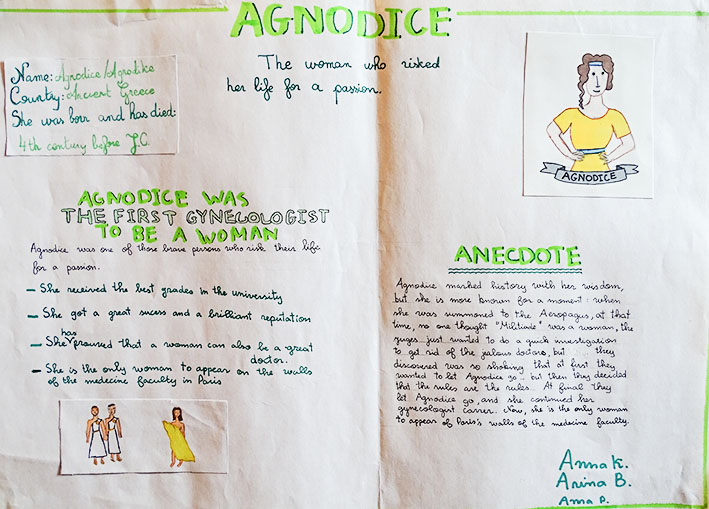 AGNODICE
The woman who risked
her life for a passion.
Name: Agnodice/Agnodike
Country: Ancient Greece
She was born and has died:
4th century before J.C.
AGNODICE
AGNODICE WAS
THE FIRST GYNECOLOGIST
TO BE A WOMAN
Agnodice was one of those brave persons who risk their life
for a passion.
– She received the best grades in the university
– She got a great sucess and a brilliant reputation
– She has prouved that a woman can also be a great
doctor.
– She is the only woman to appear on the walls
of the medecine faculty in Paris
ANECDOTE
Agnodice marked history with her wisdom,
but she is more known for a moment: when
she was summoned to the Aeropagus, at that
time, no one thought "Militiade" was a woman, the
juges just wanted to do a quick investigation
to get rid of the jealous doctors, but ... they
discovered was so shoking that at first they
wanted to let Agnodice go... but then they decided
that the rules are the rules. At final they
let Agnodice go, and she continued her
gynecologist carrer. Now, she is the only woman
to appear of Paris's walls of the medecine faculty.
Anna K.
Arina B.
Anna P.